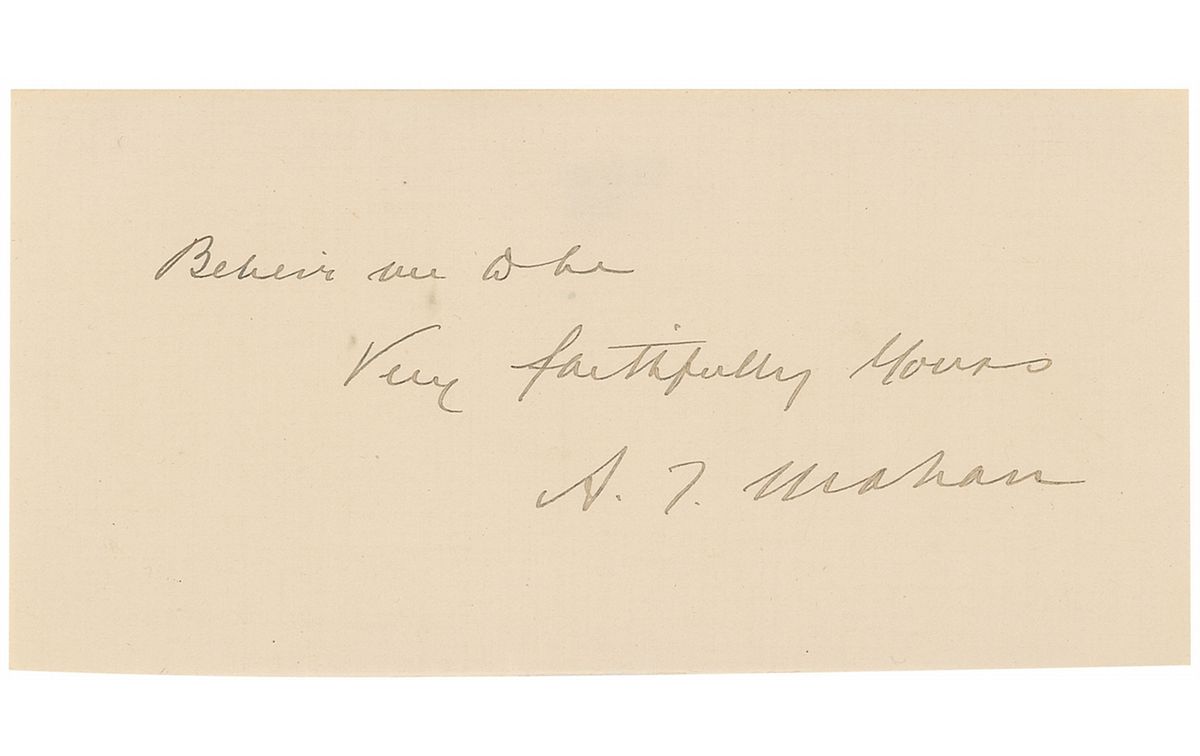 Believe me to be
Very faithfully Yours
A. T. Mahan